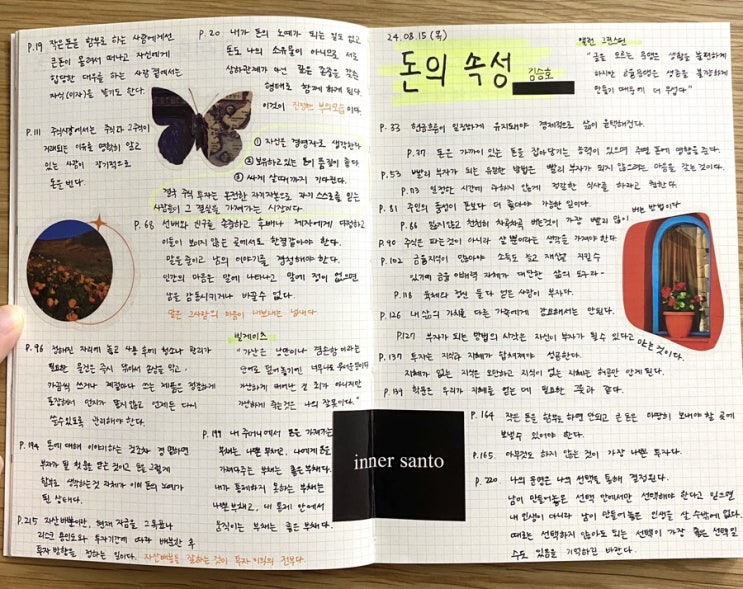 P.19 작은돈을 함부로 하는 사람에게선
큰돈이 몰려서 떠나고 자신에게
합당한 대우를 하는 사람 곁에서는
자식(이자)을 낳기도 한다.
P.20 내가 돈의 노예가 되는 일도 없고
돈도 나의 소유물이 아니므로 서로
상하관계가 아닌 깊은 존중을 갖춘
형태로 함께 하게 된다.
이것이 진정한 부의모습이다.
P.111 주식시장에서는 주식과 그주식이
거래되는 이유를 명확히 알고
있는 사람이 장기적으로
돈을 번다.
① 자신을 경영자로 생각한다
② 보유하고있는 돈이 품질이 좋다
③ 싸게 살때까지 기다린다.
결국 주식 투자는 온전한 자기자본으로 자기 스스로를 믿는
사람들이 그 결실을 가져가는 시장이다.
P.68 선배와 친구를 존중하고 후배나 제자에게 다정하고
이들이 보이지 않는 곳에서도 한결같아야 한다.
말을줄이고 남의 이야기를 경청해야 한다.
인간의 마음은 말에 나타나고 말에 정이 없으면
남을 감동시키거나 바꿀수 없다.
말은 그사람의 마음이 내보내는 냄새다.
P.96 정해진 자리에 두고 사용 후에 청소나 관리가
필요한 물건은 즉시 닦아서 손상을 막고,
가끔씩 쓰거나 계절마다 쓰는 제품은 정갈하게
포장해서 먼지가 쌓지 않고 언제든 다시
쓸수있도록 관리해야 한다.
빌게이츠
"가난은 낭만이나 겸손함이라는
단어로 덮어놓기엔
가난하게 태어난 건 죄가 아니지만
가난하게 죽는것은 나의 잘못이다."
P.194 돈에 대해 이야기하는 것조차 경멸하면
부자가 될 첫 문을 닫은 것이고 돈을 그렇게
함부로 생각하는것 자체가 이미 돈의 노예가
된 상태다.
P.199 내 주머니에서 돈을 가져가는
부채는 나쁜 부채고, 나에게 돈을
가져다주는 부채는 좋은부채다.
내가 통제하지 못하는 부채는
나쁜부채고, 내 통제 안에서
움직이는 부채는 좋은 부채다.
P.215 자산배분이란, 현재 자금을 그 유효나
리스크 용인도와 투자기간에 따라 배분한 후
투자 방향을 정하는 일이다. 자산배분을 잘하는 것이 투자 이익의 전부다.
inner santo
24.08.15 (목)
돈의 속성 김승호
앨런 그린스펀
"글을 모르는 문맹은 생활을 불편하게
하지만 금융문맹은 생존을 불가능하게
만들기 때문에 더 무섭다"
P.33 현금흐름이 일정하게 유지돼야 경제적으로 삶이 윤택해진다.
P.37 돈은 가까이 있는 돈을 잡아당기는 능력이 있으며 주변 돈에 영향을 준다.
P.53 빨리 부자가 되는 유일한 방법은 빨리 부자가 되지 않으려는 마음을 갖는것이다.
P.73 일정한 시간에 과하지 않게 정갈한 식사를 하라고 권한다.
P.81 주인의 품성이 돈보다 더 좋아야 가능한 일이다.
P.86 잃지않고 천천히 차곡차곡 버는것이 가장 빨리 많이
버는 방법이다
P.90 주식은 파는것이 아니라 살 뿐이라는 생각을 가져야 한다.
P.102 금융지식이 있어야 소득도 늘고 재산을 지킬 수
있기에 금융 이해력 자체가 대단한 삶의 도구다-
P.118 육체와 정신 둘 다 얻은 사람이 부자다.
P.126 내 삶의 가치를 다른 가족에게 강요해서는 안된다.
P.127 부자가 되는 방법의 시작은 자신이 부자가 될수 있다고 아는것이다.
P.137 투자는 지식과 지혜가 합쳐져야 성공한다.
지혜가 없는 지식은 오만하고 지식이 없는 지혜는 허공만 안게 된다.
P.139 학문은 우리가 지혜를 얻는 데 필요한 것과 같다.
P.164 작은 돈을 함부로 하면 안되고 큰 돈은 마땅히 보내야 할 곳에
보낼수 있어야 한다.
P.165. 아무것도 하지 않는 것이 가장 나쁜 투자다.
P.220 나의 운명은 나의 선택을 통해 결정된다.
남이 만들어놓은 선택 안에서만 선택해야 한다고 믿으면
내 인생이 아니라 남이 만들어 놓은 인생을 살 수밖에없다.
때로는 선택하지 않아도 되는 선택이 가장 좋은 선택일
수도 있음을 기억하길 바란다.